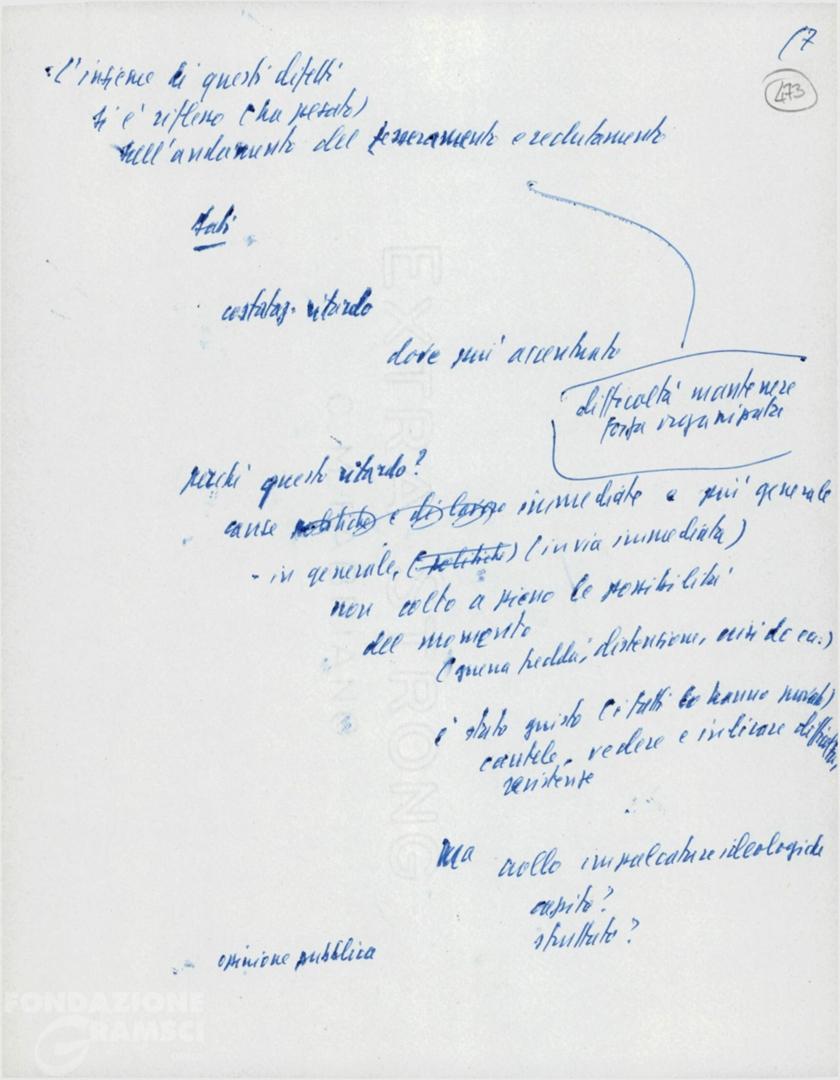 (7
473
·L'insieme di questi difetti
si è riflesso (ha pesato)
nell'andamento del tesseramento e reclutamento
dati
costataz. ritardo
dove più accentuato
difficoltà mantenere
forza organizzata
perché questo ritardo?
cause politiche e di lavoro immediate e più generale
- in generale, (politiche) (in via immediata)
non colto a pieno le possibilità
del momento
(guerra fredda, distensione, crisi dc ecc.)
è stato giusto (i fatti lo hanno provato)
cautele, vedere e indicare difficoltà,
resistenze
ma crollo impalcature ideologiche
capito?
sfruttato?
opinione pubblica
EXTRA STRONG
FONDAZIONE
GRAMSCI